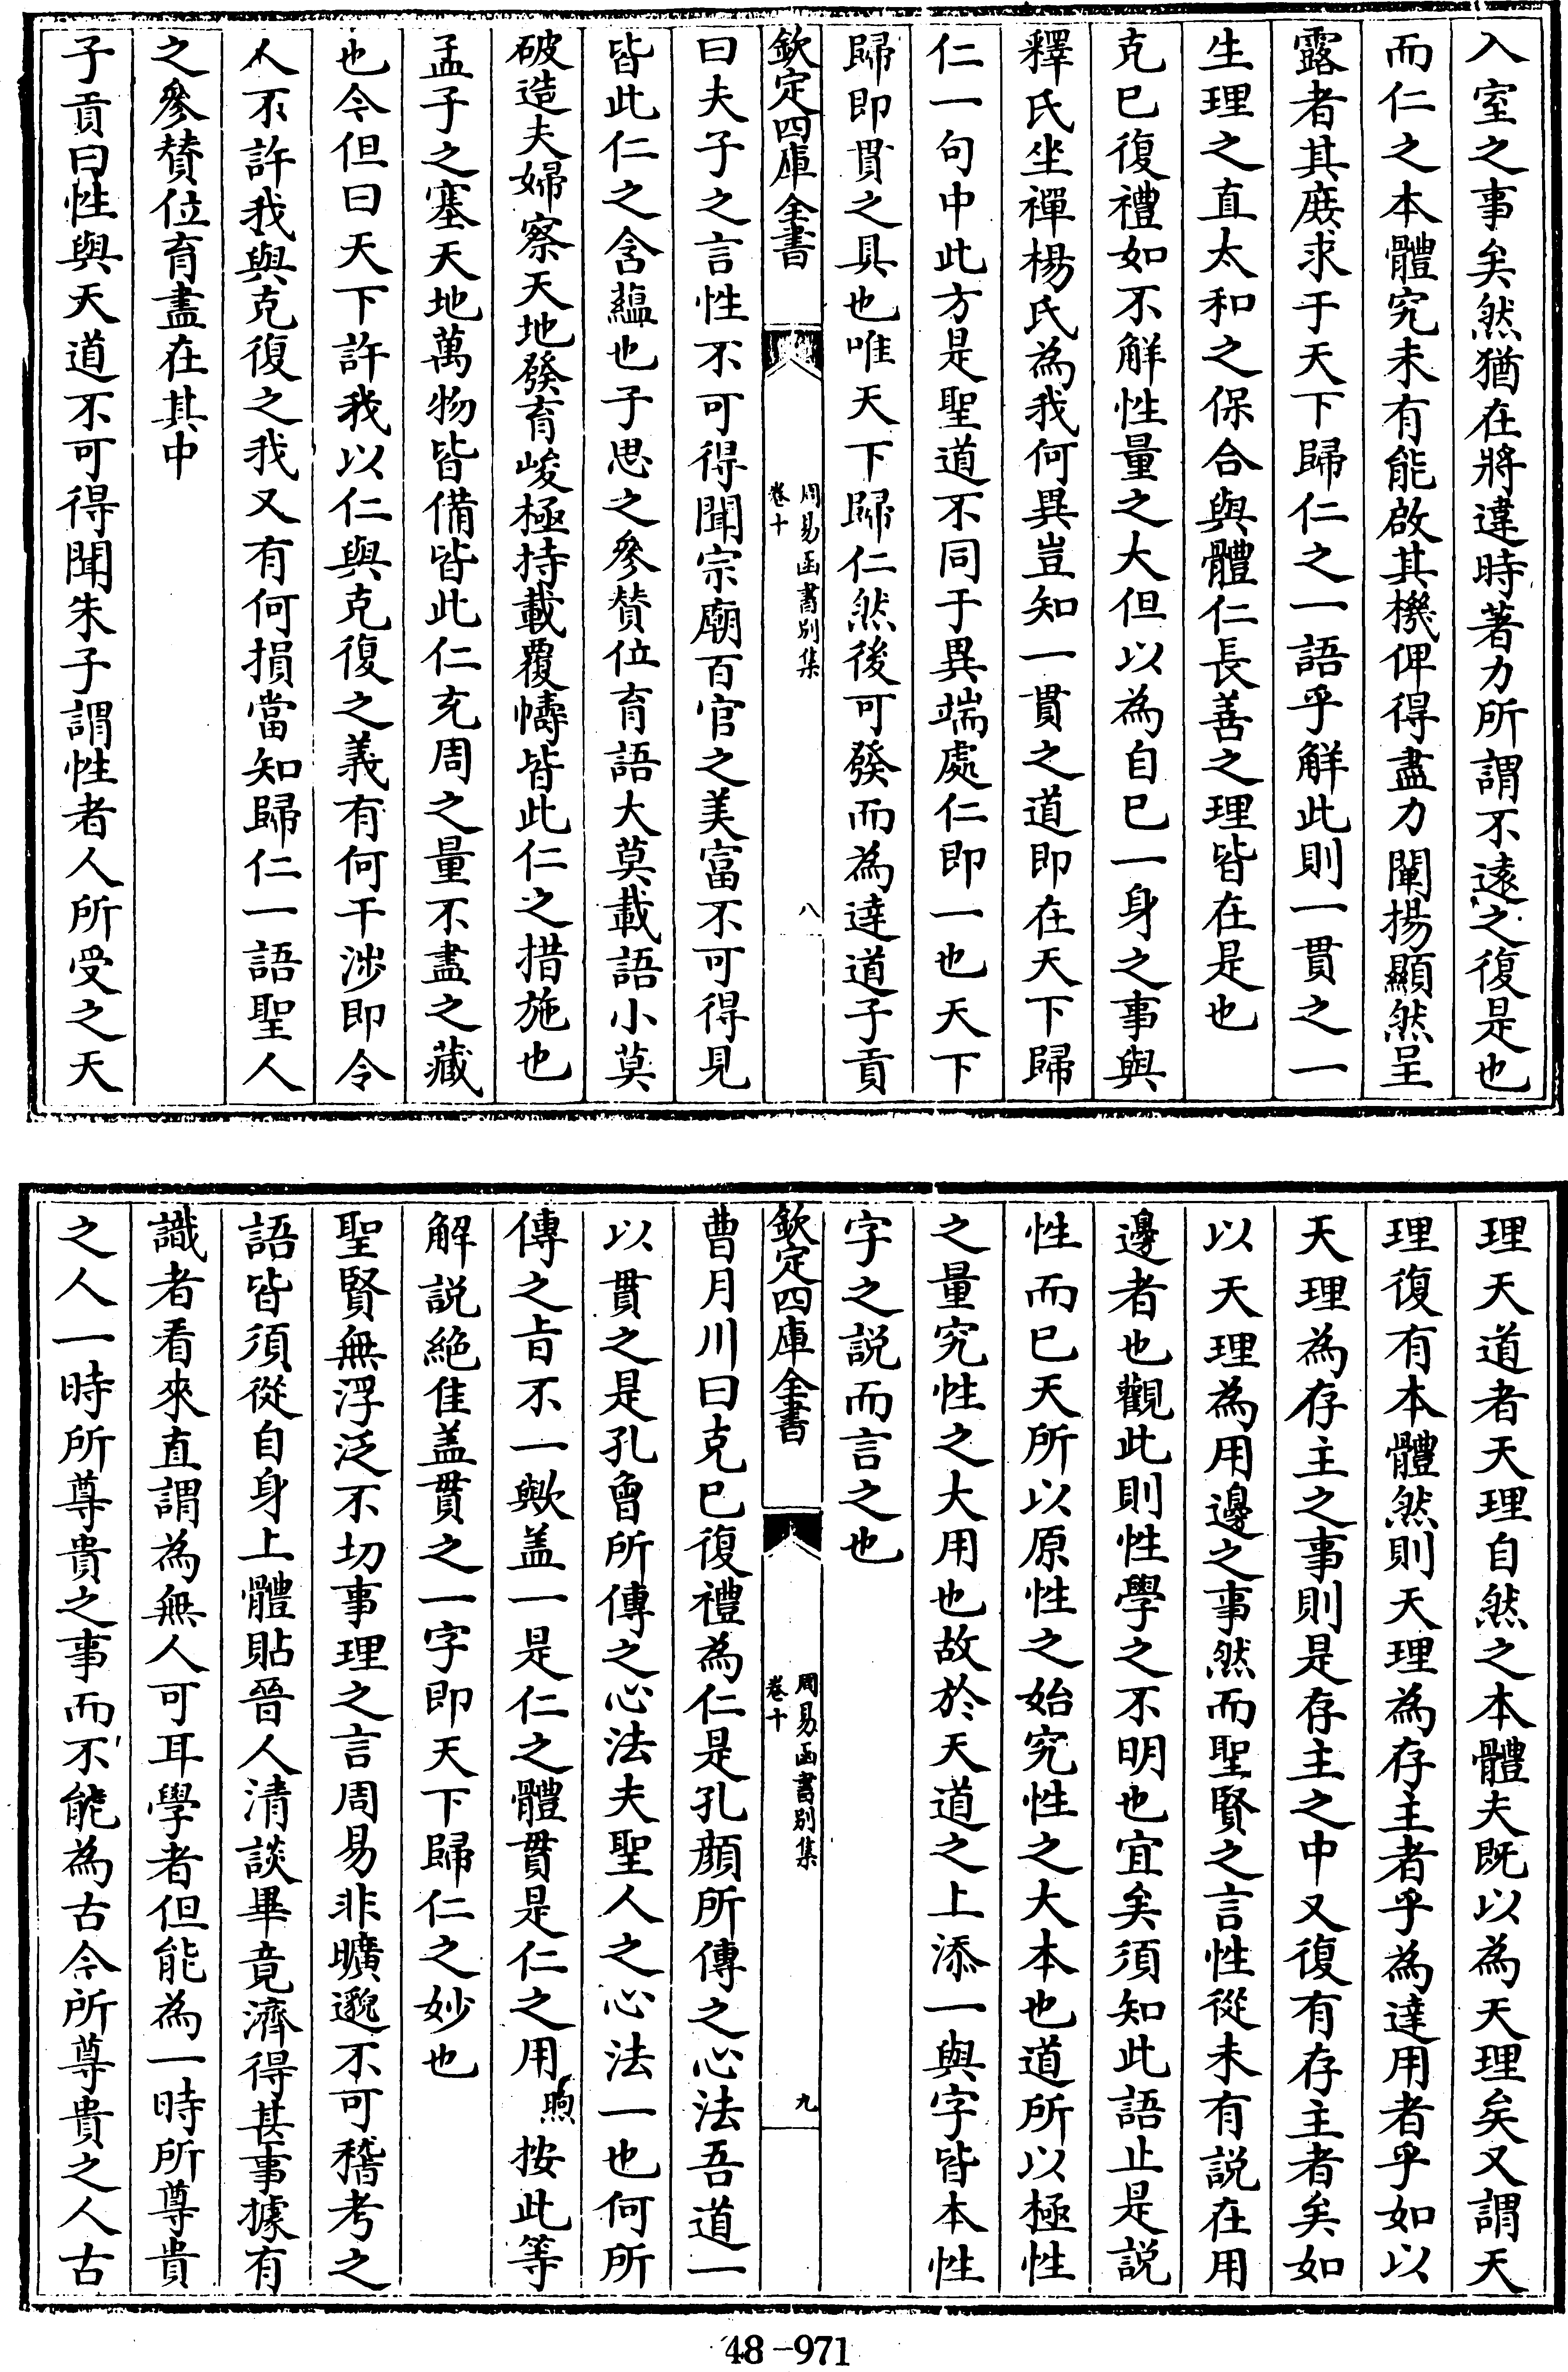 入室之事矣然猶在將達時著力所謂不遠之復是也
而仁之本體究未有能啟其機俾得盡力闡揚顯然呈
露者其庶求于天下歸仁之一語乎解此則一貫之一
生理之直太和之保合與體仁長善之理皆在是也
克已復禮如不解性量之大但以為自已一身之事與
釋氏坐禪楊氏為我何異豈知一貫之道即在天下歸
仁一句中此方是聖道不同于異端處仁即一也天下
歸即貫之具也唯天下歸仁然後可發而為達道子貢
欽定四庫全書
周易函書別集
卷十
八
曰夫子之言性不可得聞宗廟百官之美富不可得見
皆此仁之含蘊也子思之參贊位育語大莫載語小莫
破造夫婦察天地發育峻極持載覆幬皆此仁之措施也
孟子之塞天地萬物皆備皆此仁充周之量不盡之藏
也今但曰天下許我以仁與克復之義有何干涉即令
人不許我與克復之我又有何損當知歸仁一語聖人
之參贊位育盡在其中
子貢曰性與天道不可得聞朱子謂性者人所受之天
理天道者天理自然之本體夫既以為天理矣又謂天
理復有本體然則天理為存主者乎為達用者乎如以
天理為存主之事則是存主之中又復有存主者矣如
以天理為用邊之事然而聖賢之言性從未有說在用
邊者也觀此則性學之不明也宜矣須知此語止是說
性而已天所以原性之始究性之大本也道所以極性
之量究性之大用也故於天道之上添一與字皆本性
字之說而言之也
欽定四庫全書
周易函書別集
卷十
九
曹月川曰克已復禮為仁是孔顏所傳之心法吾道一
以貫之是孔曾所傳之心法夫聖人之心法一也何所
傳之旨不一歟盖一是仁之體貫是仁之用煦按此等
解說絕佳盖貫之一字即天下歸仁之妙也
聖賢無浮泛不切事理之言周易非曠邈不可稽考之
語皆須從自身上體貼晉人清談畢竟濟得甚事據有
識者看來直謂為無人可耳學者但能為一時所尊貴
之人一時所尊貴之事而不能為古今所尊貴之人古
48-971